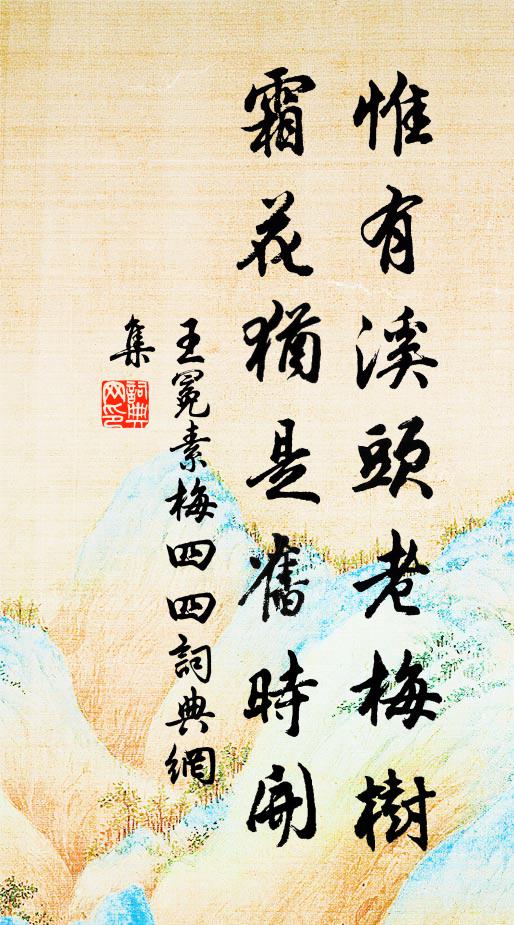 惟有溪頭老梅樹
霜花猶是舊時開
王冕素梅四四詞典網
集
詞典網印